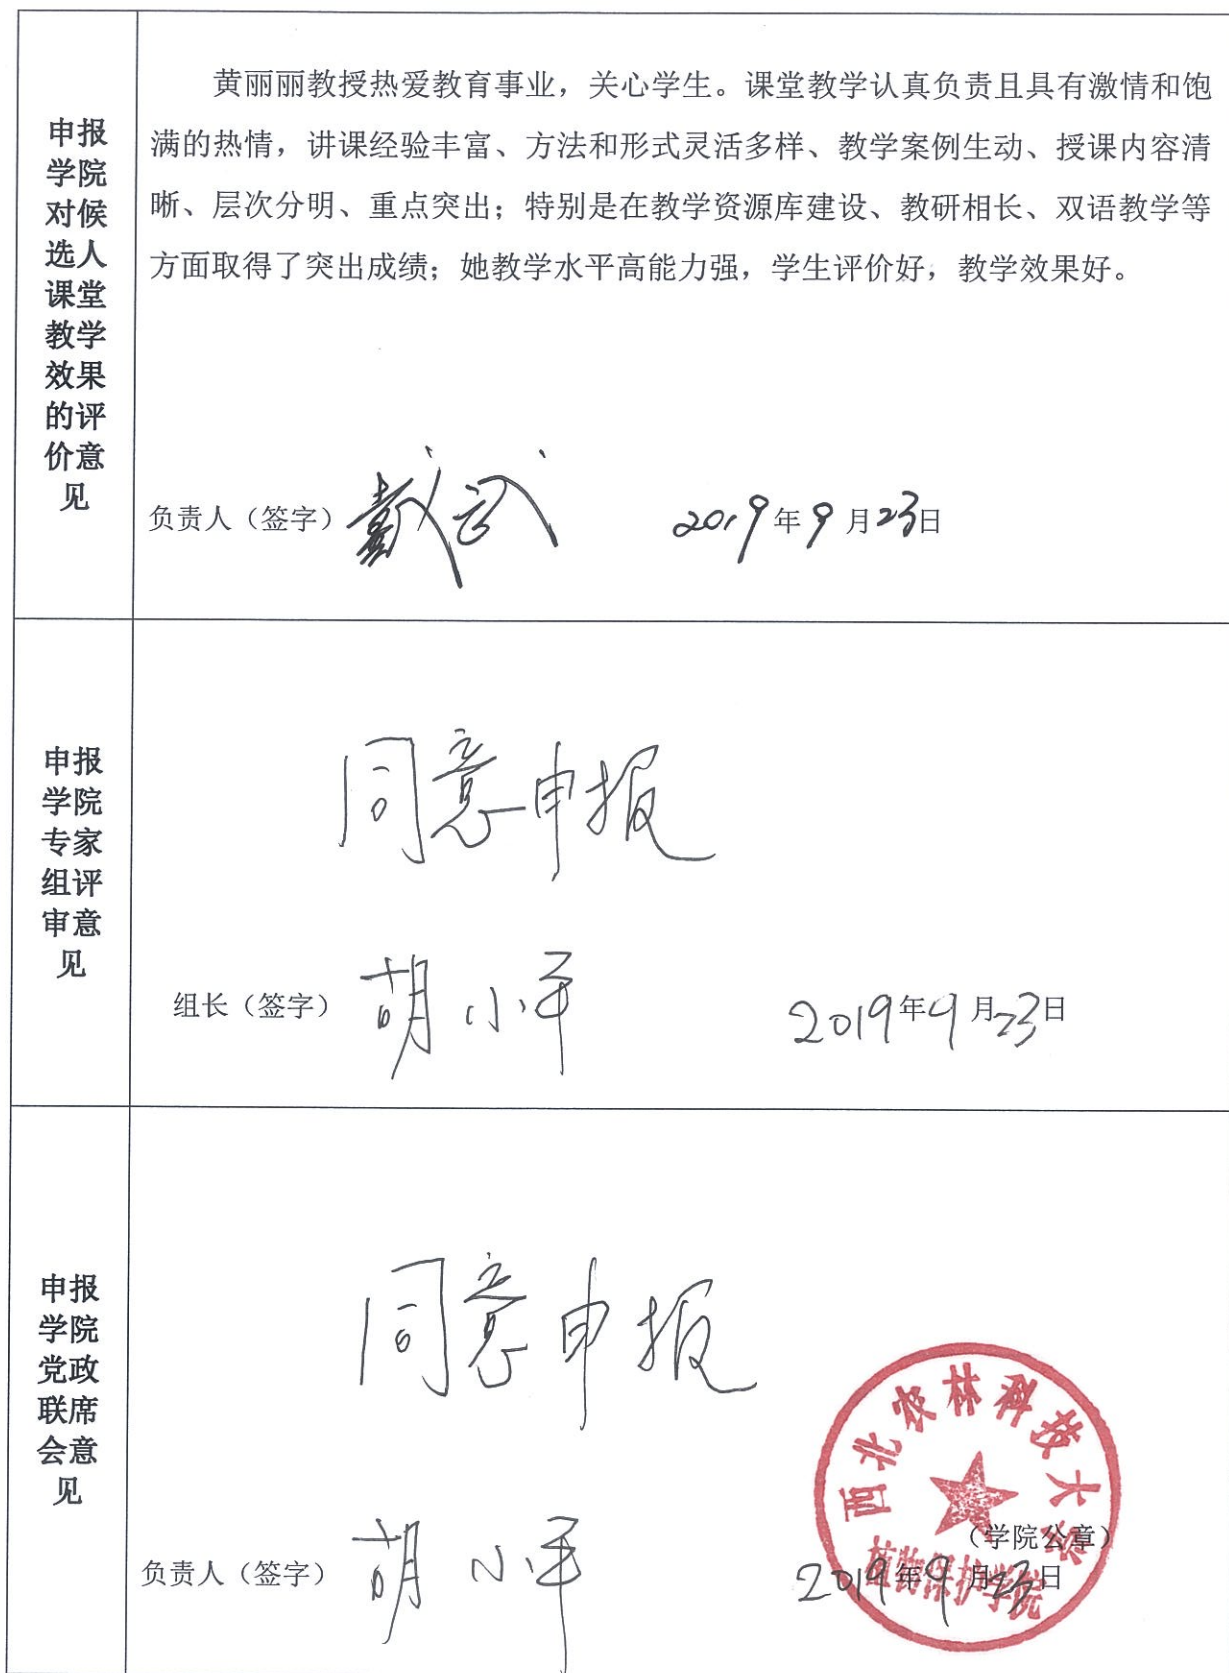 申报
学院
对候
选人
课堂
教学
效果
的评
价意
见
黄丽丽教授热爱教育事业，关心学生。课堂教学认真负责且具有激情和饱
满的热情，讲课经验丰富、方法和形式灵活多样、教学案例生动、授课内容清
晰、层次分明、重点突出；特别是在教学资源库建设、教研相长、双语教学等
方面取得了突出成绩；她教学水平高能力强，学生评价好，教学效果好。
负责人（签字） 戴武 2019年9月23日
申报
学院
专家
组评
审意
见
同意申报
组长（签字） 胡小平 2019年9月23日
申报
学院
党政
联席
会意
见
同意申报
西北农林科技大学
（学院公章）
植物保护学院
负责人（签字） 胡小平 2019年9月23日